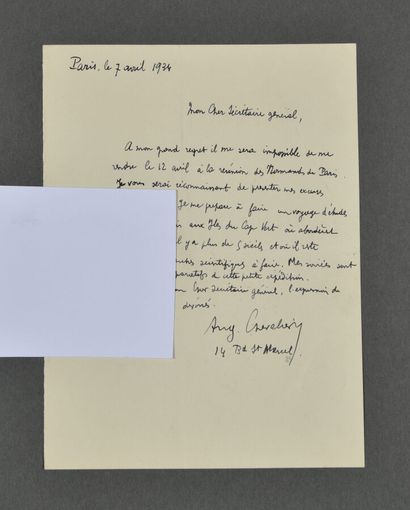 Paris, le 7 avril 1934
Mon Cher Secrétaire général,
A mon grand regret il me sera impossible de me
rendre le 12 avril à la réunion des Normands de Paris.
Je vous serai reconnaissant de présenter mes excuses
Je me prépare à faire un voyage d'études
aux Iles du Cap Vert où abordèrent
il y a plus de 5 siècles et où il reste
scientifiques à faire. Mes soirées sont
préparatifs de cette petite expédition.
Cher Secrétaire général, l'expression de
dévoués.
Aug. Chevalier
14 Bd St Marcel